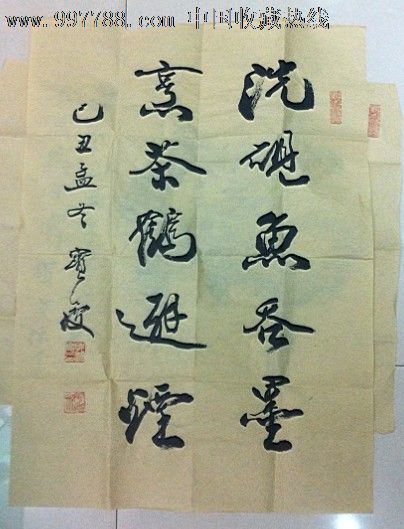 www.997788.com 中国收藏热线
洗硯魚吞墨
烹茶鶴避煙
己丑孟冬寶